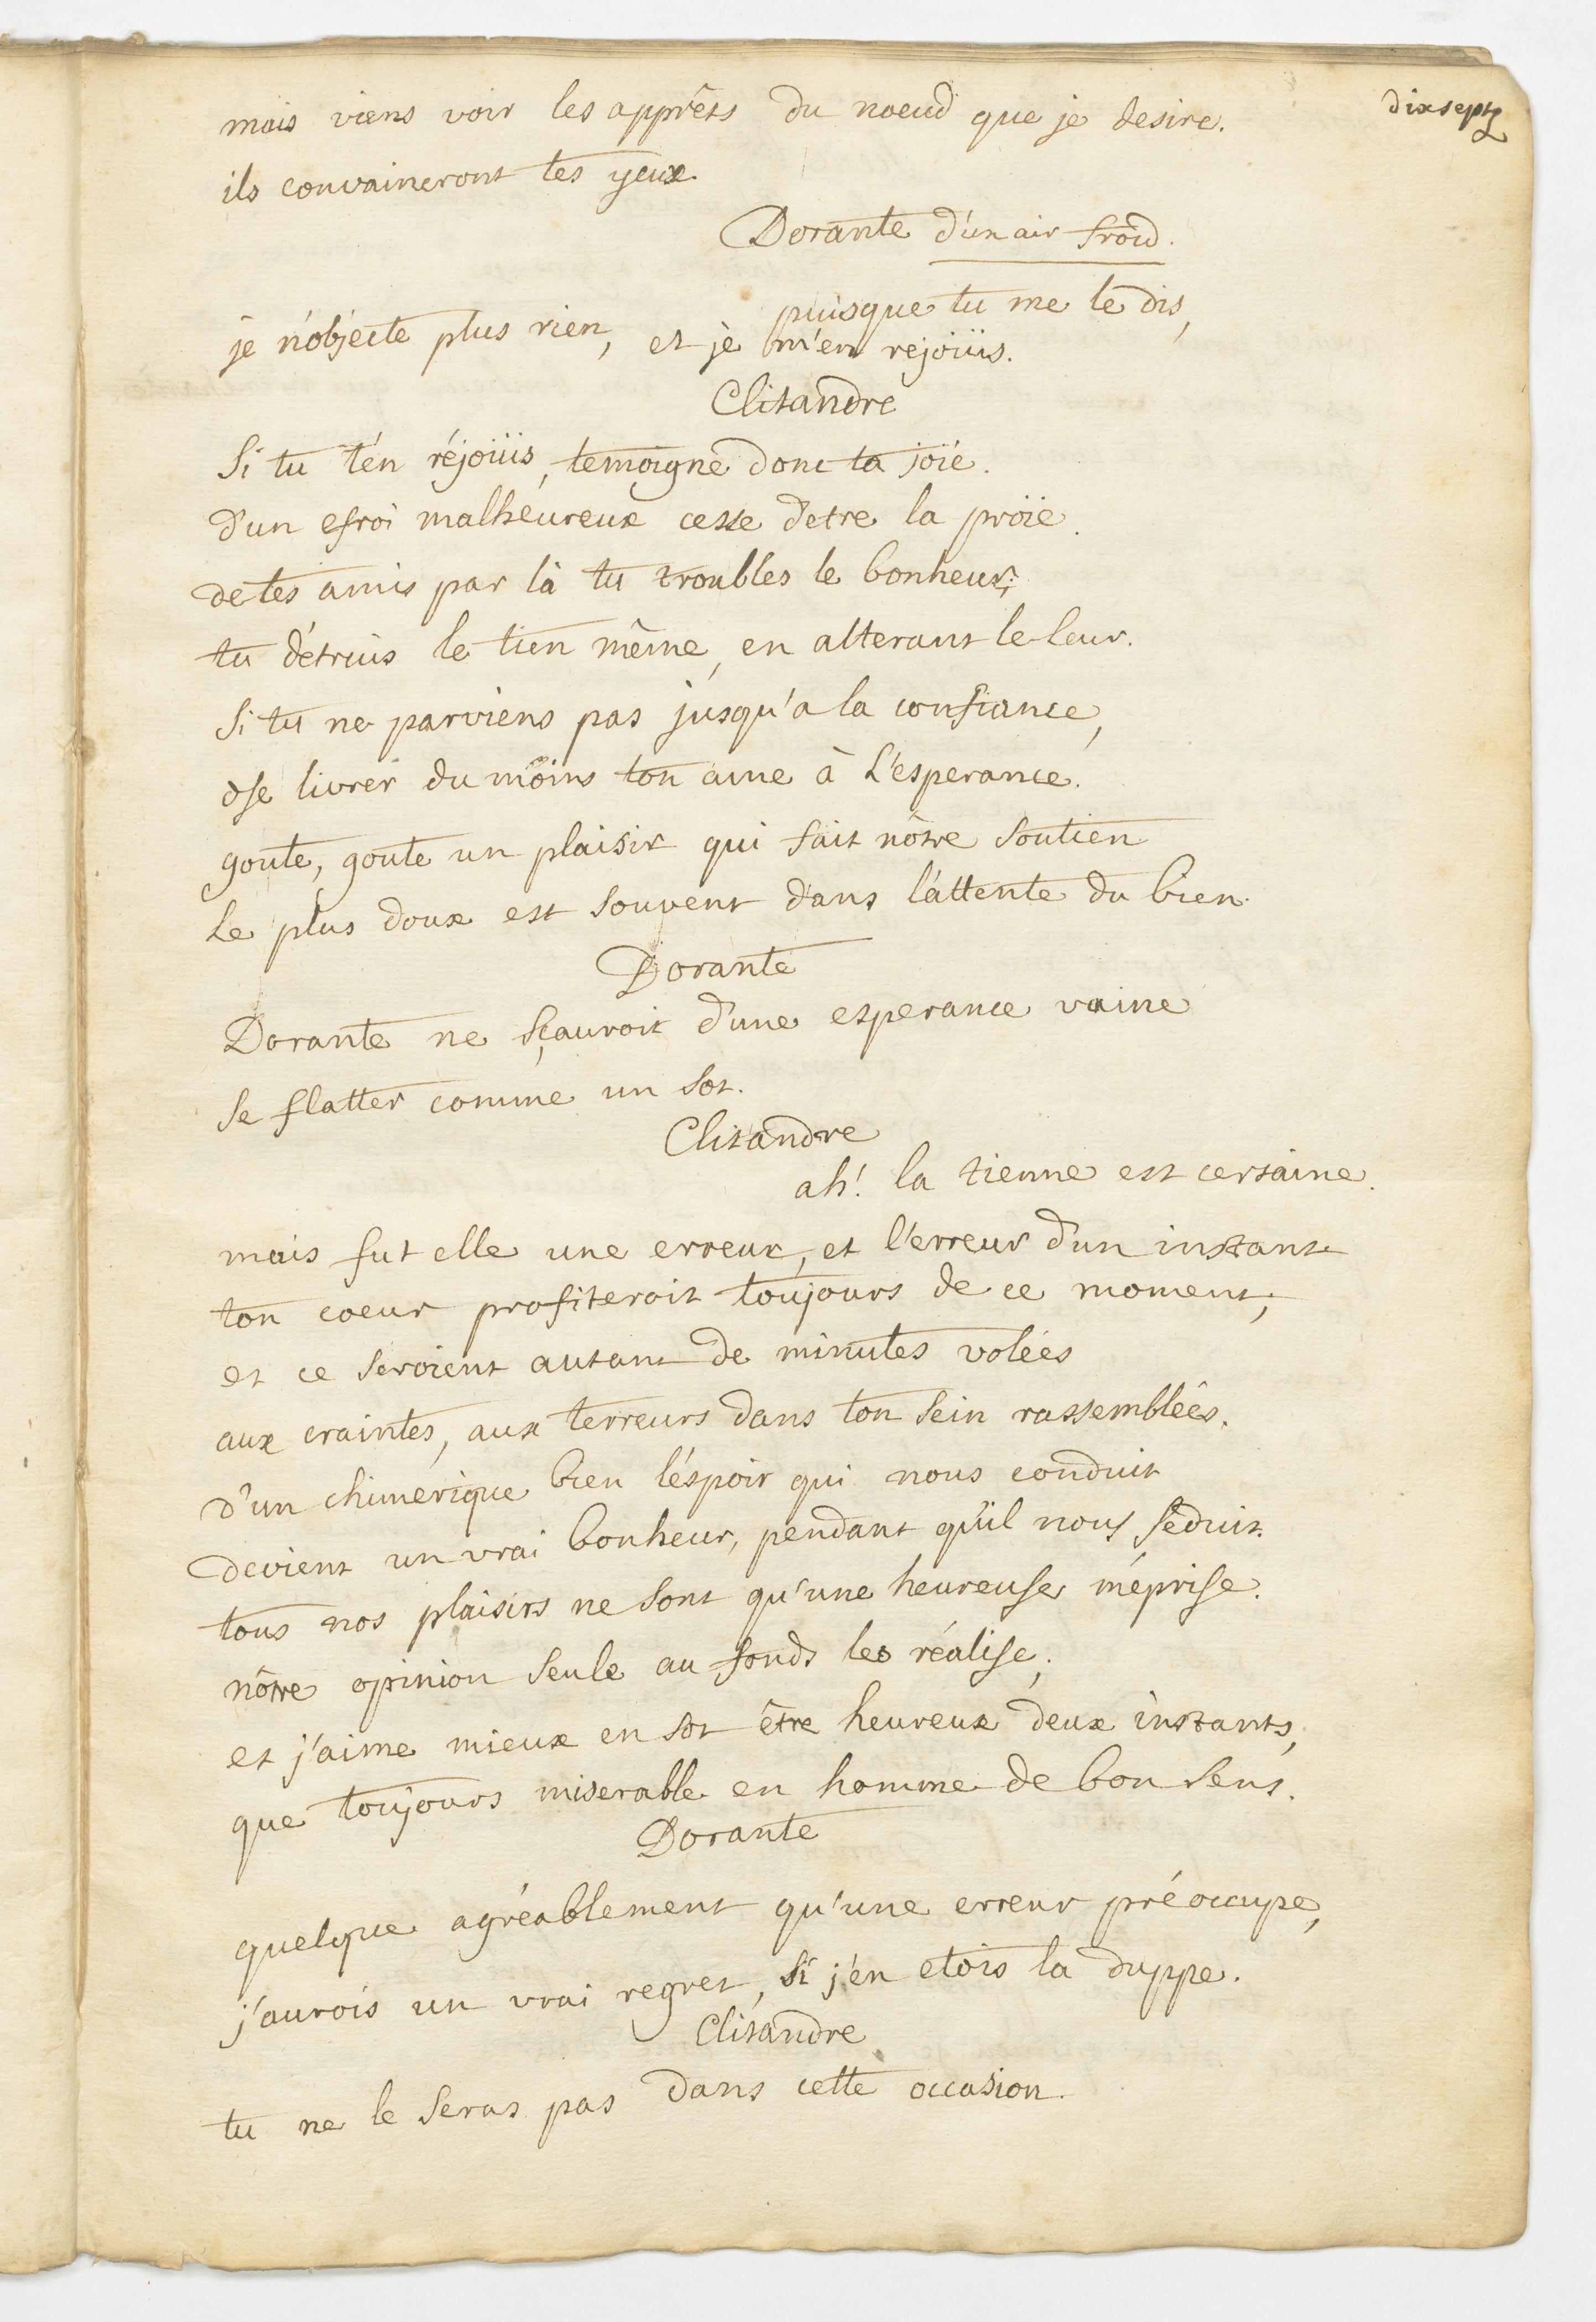 dixsept
mais viens voir les apprêts du noeud que je desire.
ils convaincront tes yeux.
Dorante d'un air froid.
puisque tu me le dis,
je n'objecte plus rien, et je m'en rejoüis.
Clitandre
Si tu t'en réjoüis, temoigne donc ta joïe.
d'un efroi malheureux cesse d'etre la proïe.
de tes amis par là tu troubles le bonheur;
tu détruis le tien même, en alterant le leur.
Si tu ne parviens pas jusqu'a la confiance,
ose livrer du moins ton ame à L'esperance.
goute, goute un plaisir qui fait nôtre soutien
Le plus doux est souvent dans l'attente du bien.
Dorante
Dorante ne sçauroit d'une esperance vaine
Se flatter comme un sot.
Clitandre
ah! la tienne est certaine.
mais fut elle une erreur, et l'erreur d'un instant
ton coeur profiteroit toujours de ce moment;
et ce seroient autant de minutes volées
aux craintes, aux terreurs dans ton sein rassemblées.
d'un chimerique bien l'éspoir qui nous conduit
devient un vrai bonheur, pendant qu'il nous séduit.
tous nos plaisirs ne sont qu'une heureuse méprise.
nôtre opinion seule au fonds les réalise;
et j'aime mieux en sot être heureux deux instants,
que toujours miserable en homme de bon sens.
Dorante
quelque agréablement qu'une erreur préoccupe,
j'aurois un vrai regret, si j'en etois la duppe.
Clitandre
tu ne le seras pas dans cette occasion.